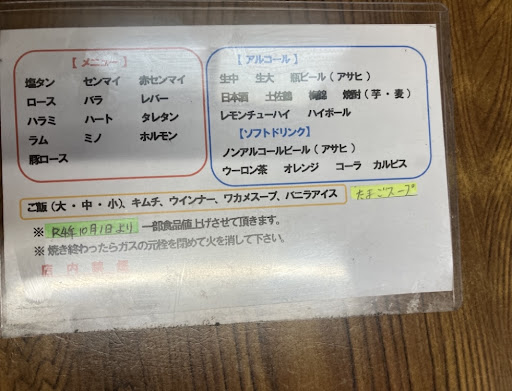 【メニュー】
塩タン センマイ 赤センマイ
ロース バラ レバー
ハラミ ハート タレタン
ラム ミノ ホルモン
豚ロース
【アルコール】
生中 生大 瓶ビール(アサヒ)
日本酒 土佐鶴 焼酎(芋・麦)
レモンチューハイ ハイボール
【ソフトドリンク】
ノンアルコールビール(アサヒ)
ウーロン茶 オレンジ コーラ カルピス
ご飯(大・中・小)、キムチ、ウインナー、ワカメスープ、バニラアイス たまごスープ
※R4年10月1日より 一部食品値上げさせて頂きます。
※焼き終わったらガスの元栓を閉めて火を消して下さい。
店内禁煙